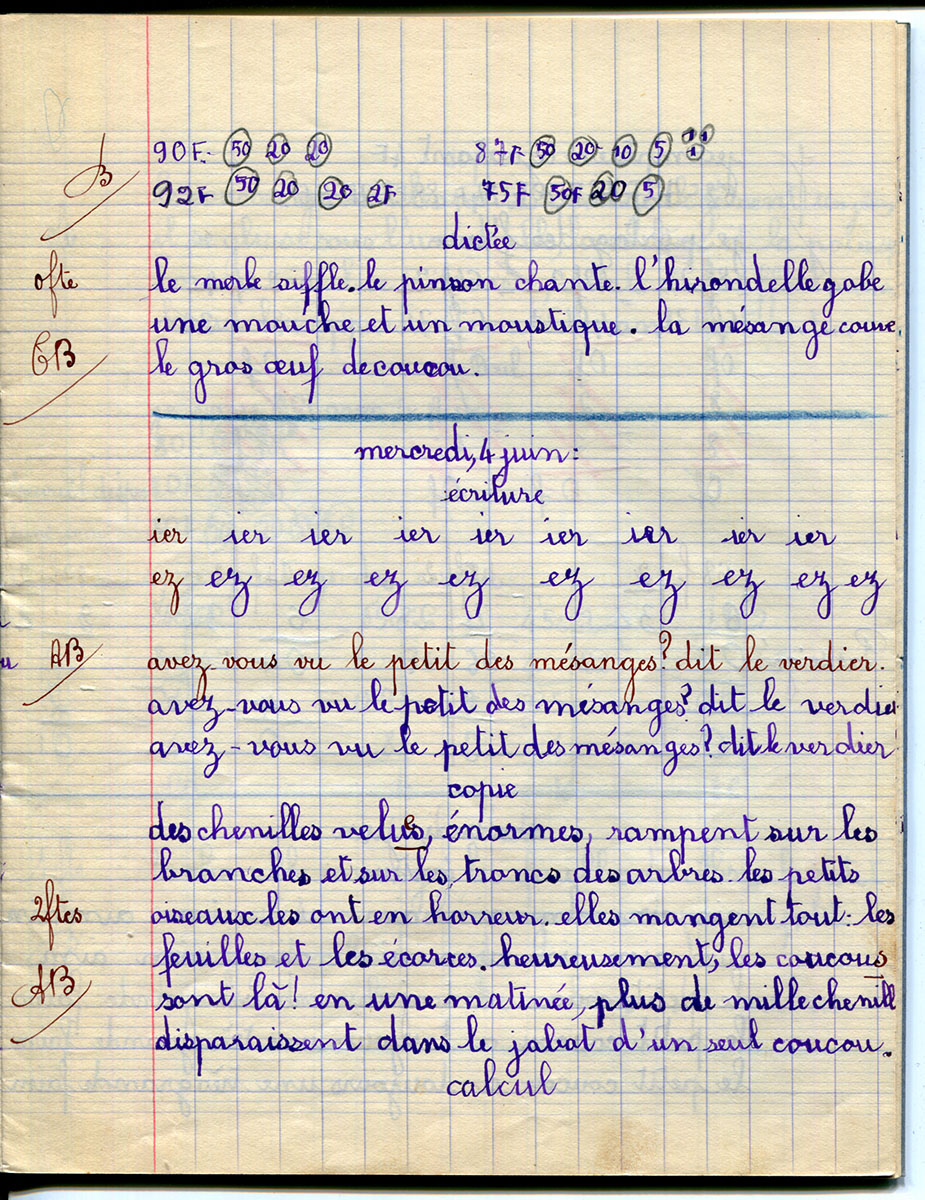 90F. 50 20 20 87F 50 20 10 5 1 1 1
B
92F 50 20 20 2F 75F 50F 20 5
dictée
ofte le merle siffle. le pinson chante. l'hirondelle gobe
une mouche et un moustique. la mésange couve
TB le gros œuf de coucou.
mercredi, 4 juin:
écriture
ier ier ier ier ier ier ier ier ier
ez ez ez ez ez ez ez ez ez ez
AB avez vous vu le petit des mésanges? dit le verdier.
avez-vous vu le petit des mésanges? dit le verdier
avez-vous vu le petit des mésanges? dit le verdier
copie
des chenilles velues, énormes, rampent sur les
branches et sur les troncs des arbres. les petits
2ftes oiseaux les ont en horreur. elles mangent tout: les
feuilles et les écorces. heureusement, les coucous
AB sont là! en une matinée, plus de mille chenill
disparaissent dans le jabot d'un seul coucou.
calcul